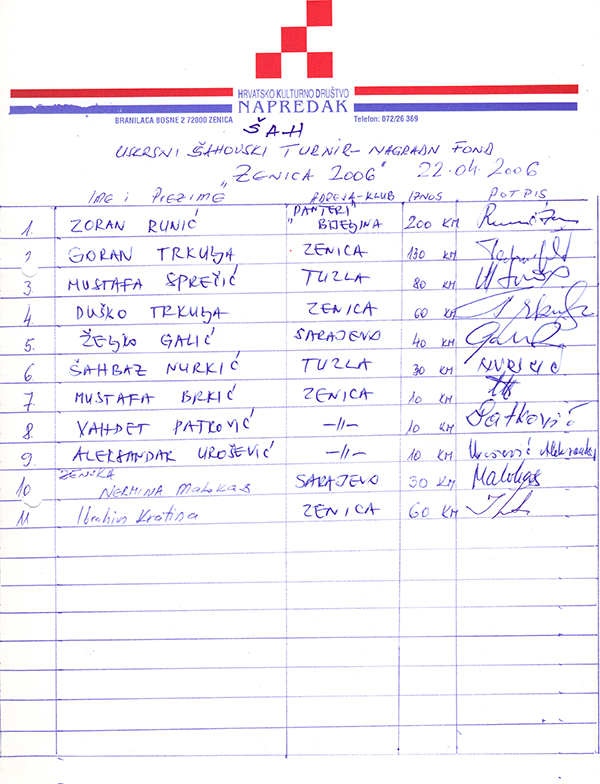 HRVATSKO KULTURNO DRUŠTVO
NAPREDAK
BRANILACA BOSNE 2 72000 ZENICA Telefon: 072/26 369
ŠAH
USKRSNI ŠAHOVSKI TURNIR - NAGRADN FOND
"ZENICA 2006" 22.04.2006
IME i PREZIME ADRESA-KLUB IZNOS POTPIS
1. ZORAN RUNIĆ "PANTERI" BIJELJINA 200 KM
2 GORAN TRKULJA ZENICA 130 KM
3 MUSTAFA SPREČIĆ TUZLA 80 KM
4. DUŠKO TRKULJA ZENICA 60 KM Trkulja
5. ŽELJKO GALIĆ SARAJEVO 40 KM
6 ŠAHBAZ NURKIĆ TUZLA 30 KM NURKIĆ
7 MUSTAFA BRKIĆ ZENICA 10 KM
8 VAHDET PATKOVIĆ -//- 10 KM Patković
9 ALEKSANDAR UROŠEVIĆ -//- 10 KM Urošević Aleksandar
ŽENSKA
10 NERMINA Malokas SARAJEVO 30 KM Malokas
11 Ibrahim Kratina ZENICA 60 KM